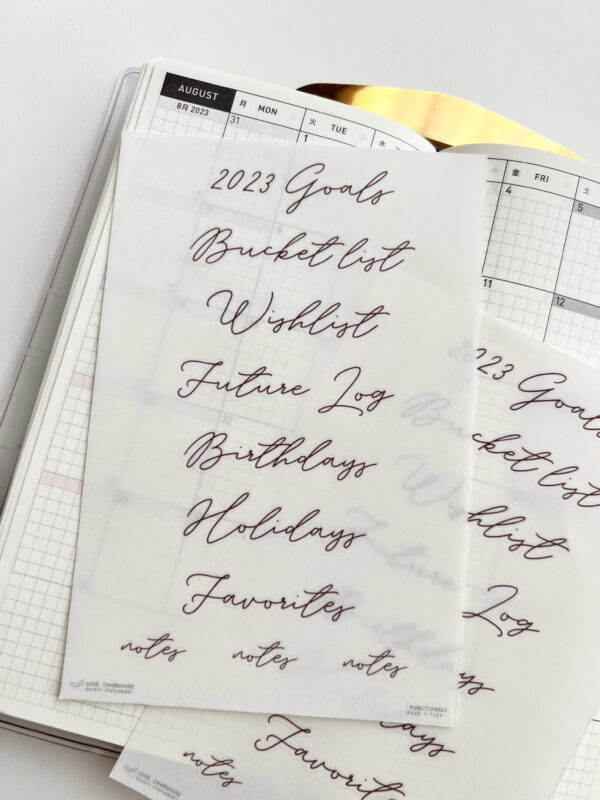 AUGUST
8月 2023
月 MON
火 TUE
水
金 FRI
土
31
1
4
5
11
12
22
2023 Goals
Bucket list
Wishlist
Future Log
Birthdays
Holidays
Favorites
notes notes notes
LOVE, CHARMAINE
DAINTY STATIONERY
FUNCTIONALS
PAGE TITLES
2023 Goals
Bucket list
Wishlist
Log
ys
days
Favorit
notes
LOVE, CHARMAINE